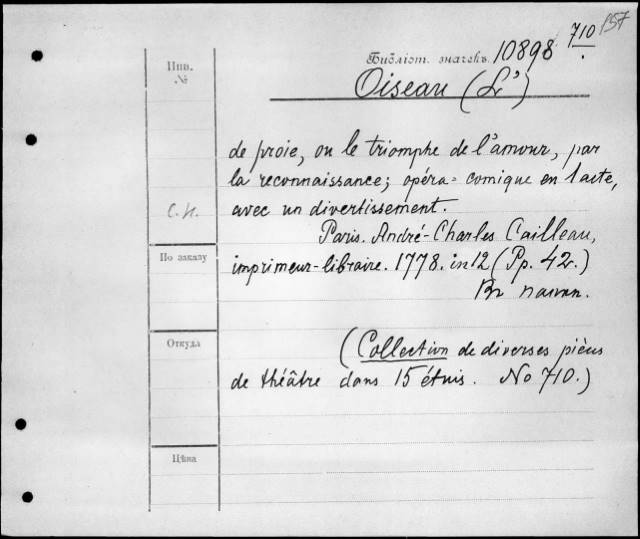 710 157
Библіот. значекъ 10898
Инв.
№
Oiseau (L')
de proie, ou le triomphe de l'amour, par
la reconnaissance; opéra-comique en 1 acte,
с. н.
avec un divertissement.
Paris. André-Charles Cailleau,
По заказу
imprimeur-libraire. 1778. in 12 (Pp. 42.)
Въ папкѣ.
Откуда
(Collection de diverses pièces
de théâtre dans 15 étuis. No 710.)
Цѣна